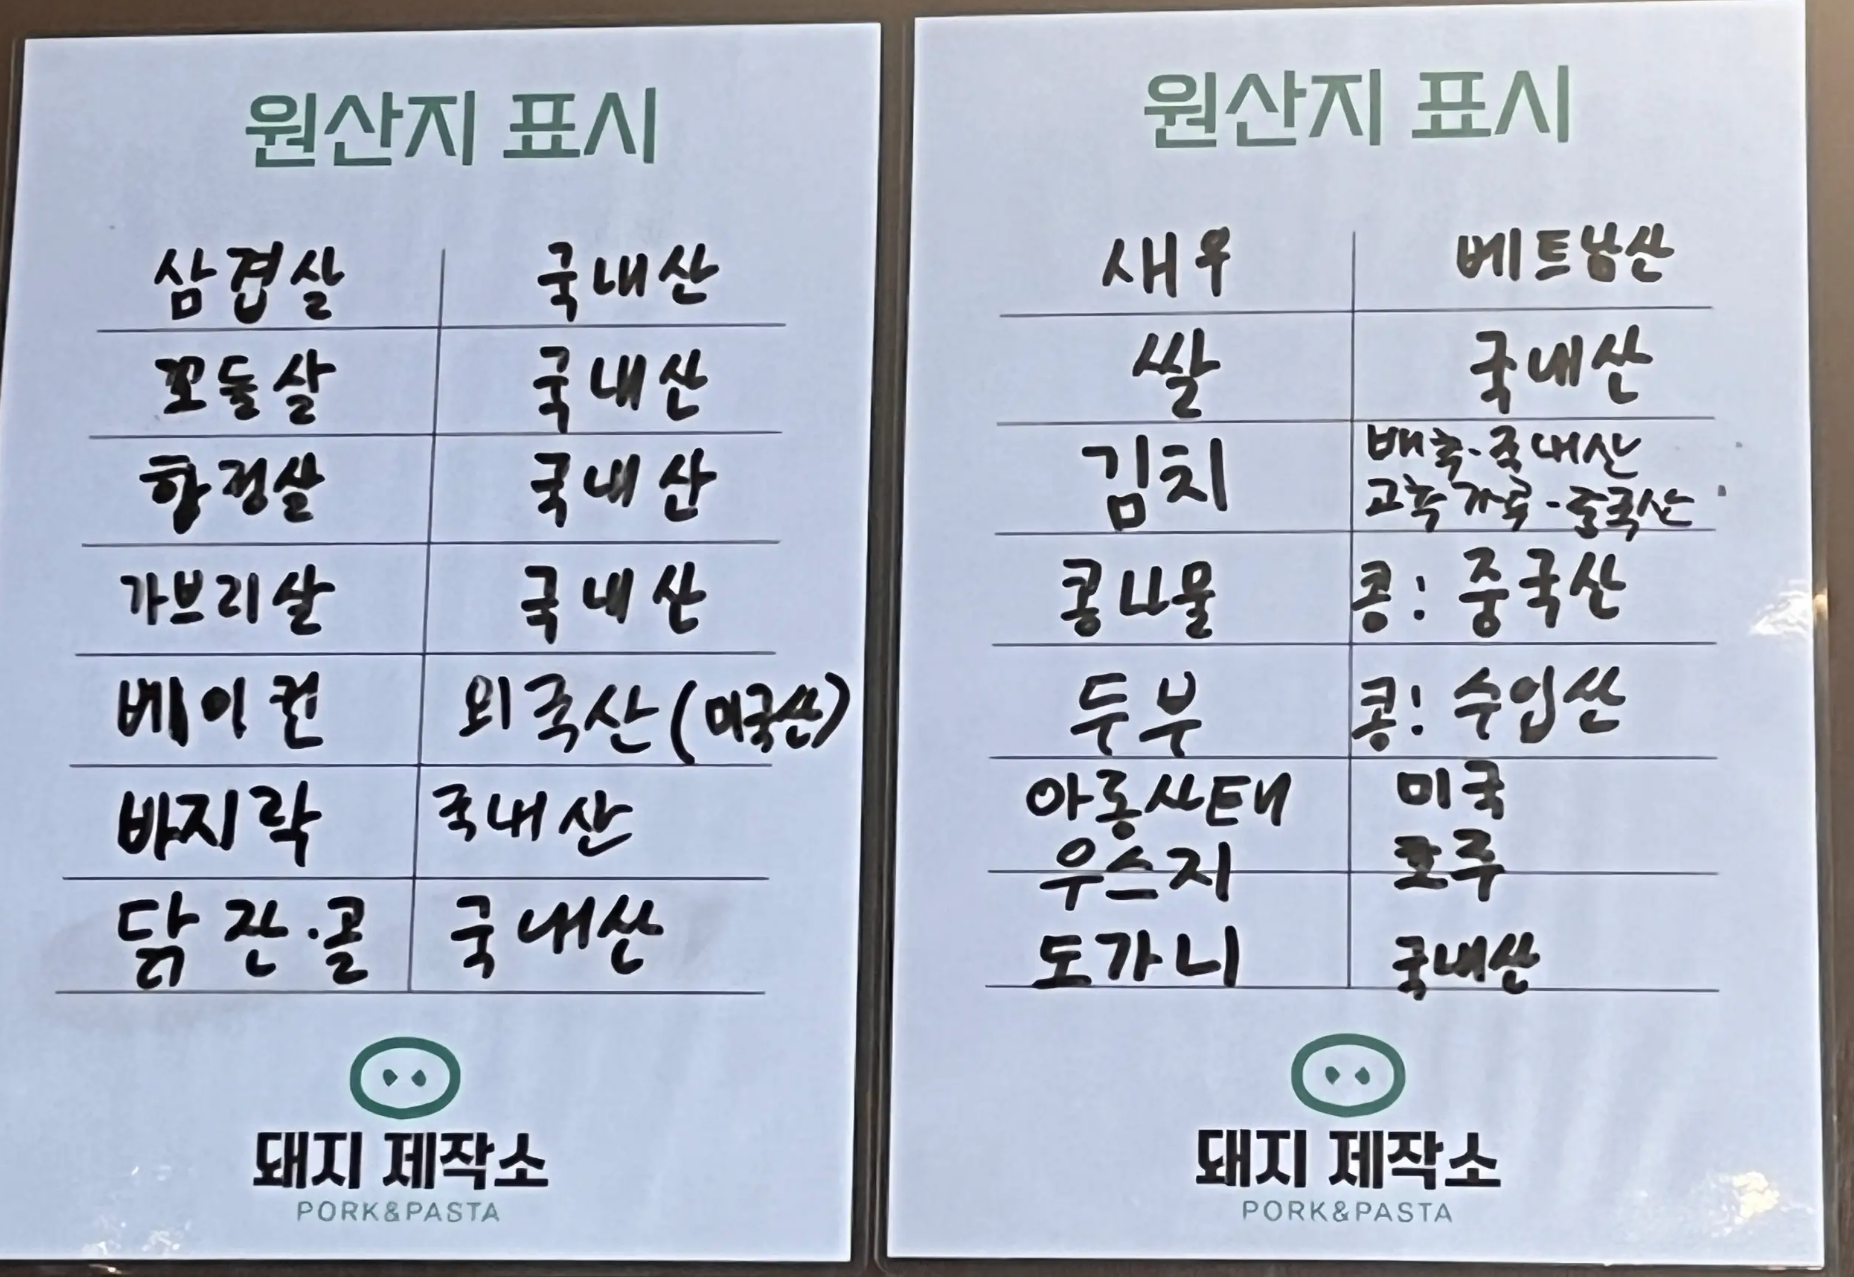 원산지 표시
삼겹살 국내산
꼬들살 국내산
항정살 국내산
가브리살 국내산
베이컨 외국산(미국산)
바지락 국내산
닭 잔·골 국내산
돼지 제작소
PORK&PASTA
원산지 표시
새우 베트남산
쌀 국내산
김치 배추-국내산
고춧가루-중국산
콩나물 콩: 중국산
두부 콩: 수입산
아롱사태 미국
우스지 호주
도가니 국내산
돼지 제작소
PORK&PASTA